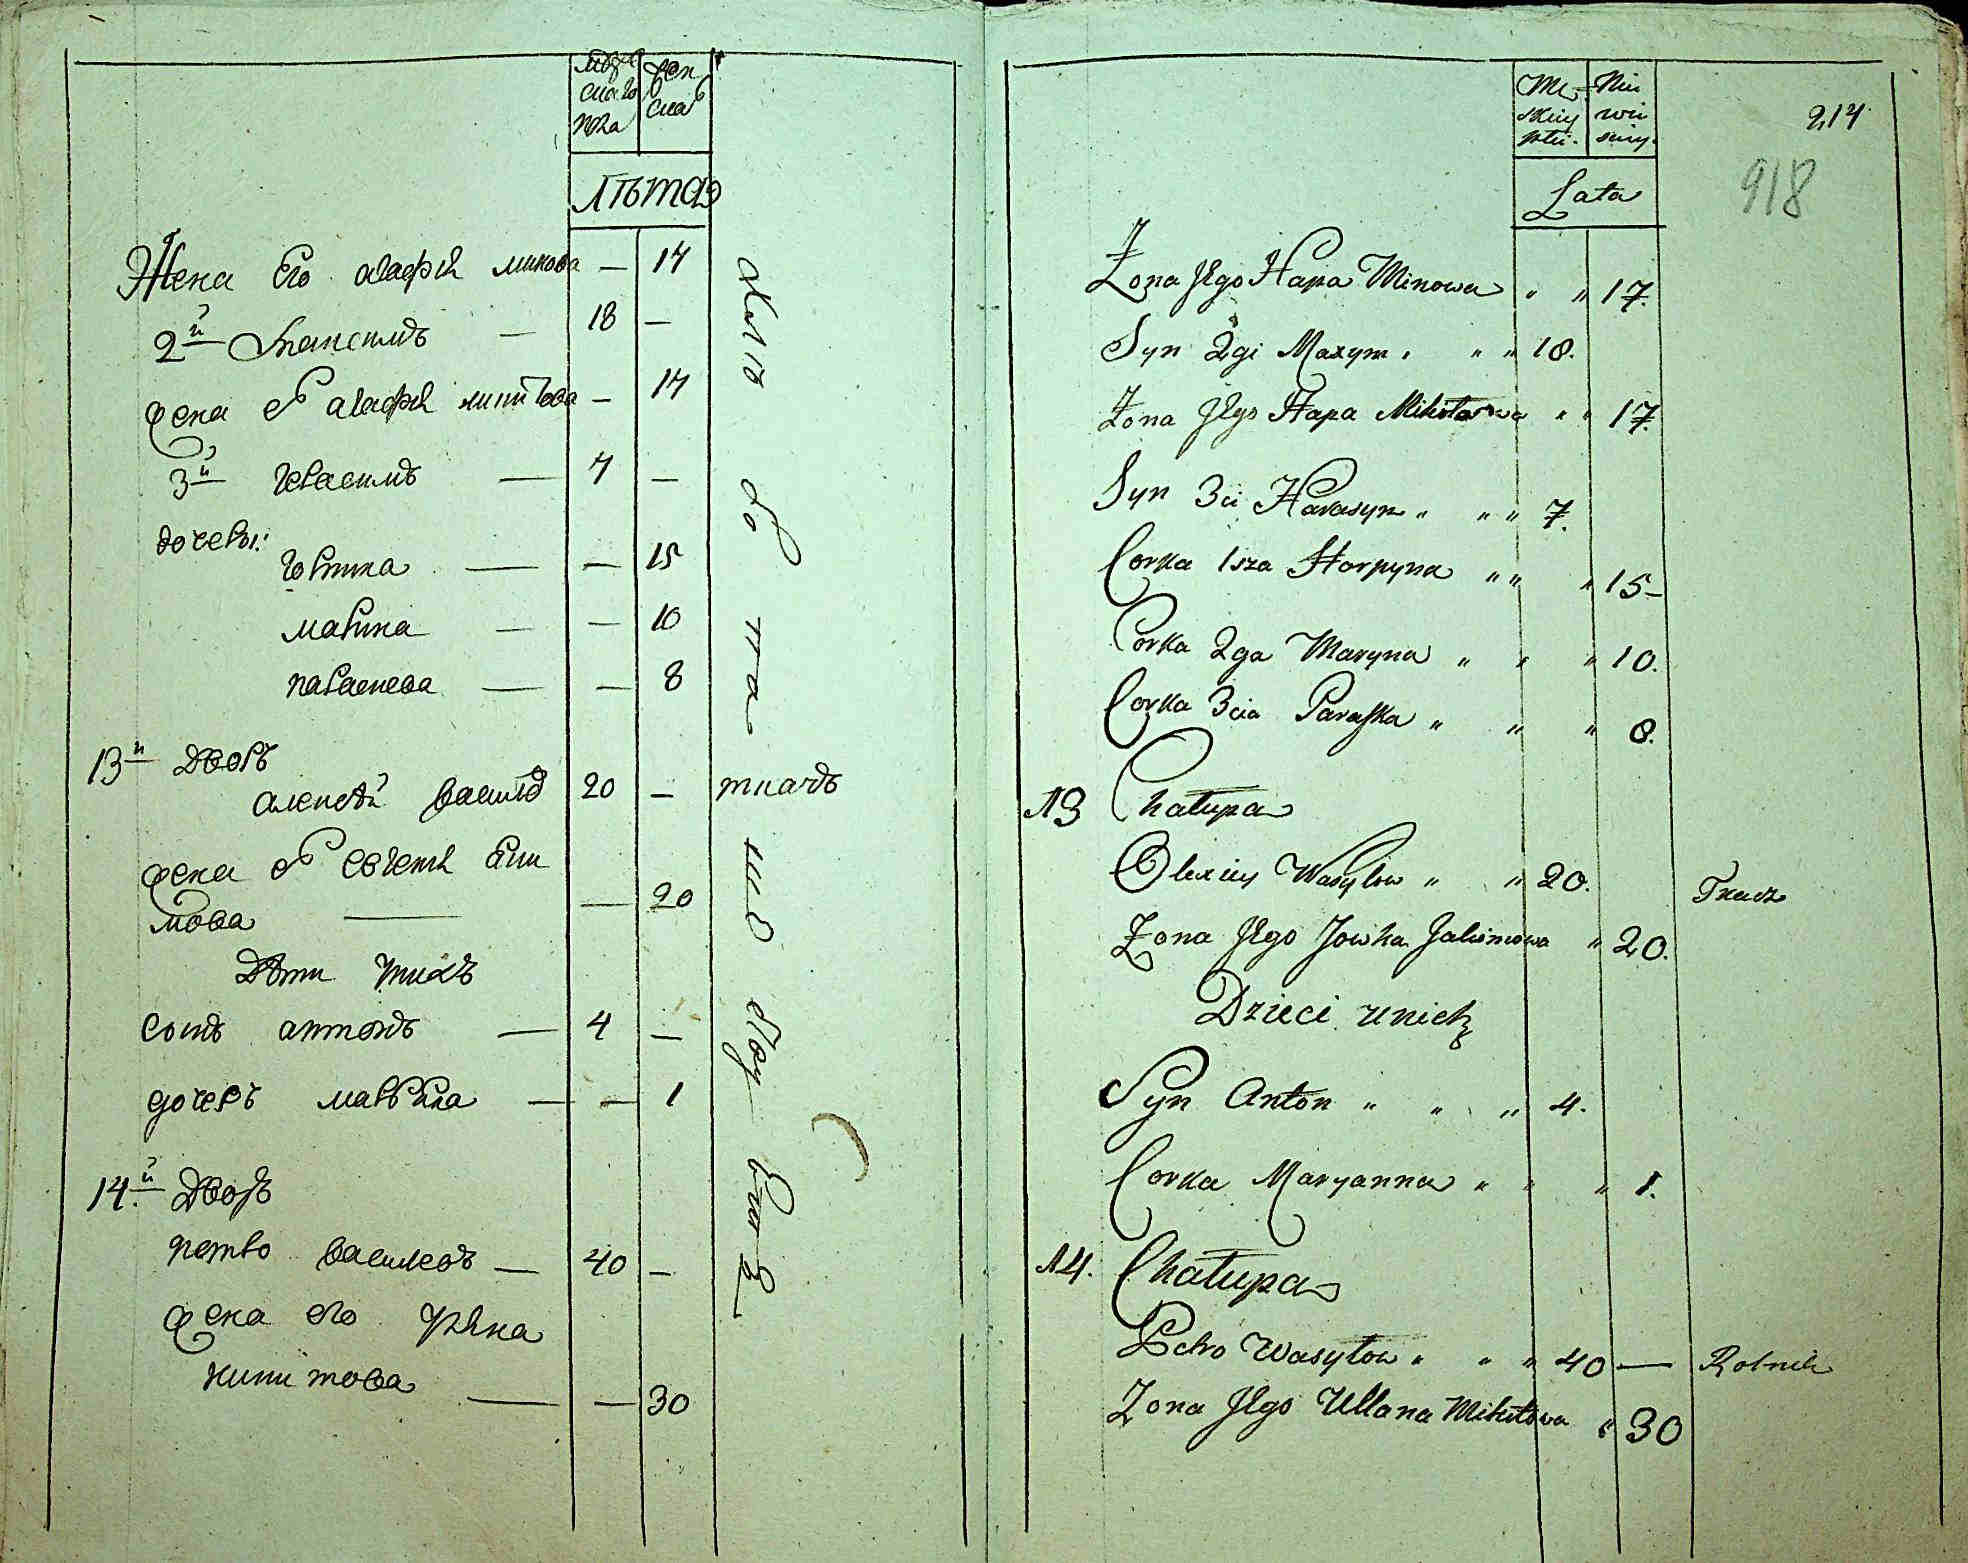 Лѣта
Жена Его агафія минова — 17
2й Максимъ — 18 —
жена Его агафія микитова — 17
3й герасимъ — 7 —
дочеры:
горпина — — 15
марина — — 10
параскева — — 8
13й дворъ
алексѣй василь 20 — ткачъ
жена Его евгенія аки
мова — — 20
Дѣти ихъ
сынъ антонъ — 4 —
дочерь марьяна — — 1
14й дворъ
петро василевъ — 40 —
жена его уляна
никитова — — 30
214
918
Męskiey płci. Niewiesciey.
Lata
Żona Jego Hapa Minowa " " 17.
Syn 2gi Maxym " " " 18.
Żona Jego Hapa Mikitowa " " 17.
Syn 3ci Harasym " " " 7.
Corka 1sza Horpyna " " " 15 –
Corka 2ga Maryna " " " 10.
Corka 3cia Paraska " " " 8.
13 Chałupa
Olexiey Wasylow " " 20. Tkacz
Żona Jego Jowha Jakimowa " 20.
Dzieci u nich
Syn Anton " " " 4.
Corka Maryanna " " " 1.
14. Chałupa
Petro Wasylow " " " 40 — Rolnik
Żona Jego Ullana Mikitowa " 30